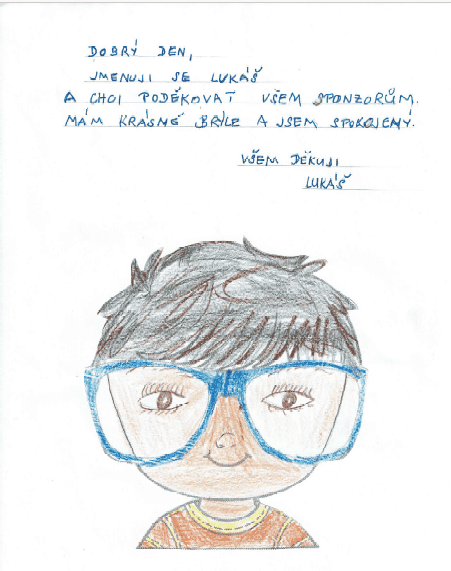 DOBRÝ DEN,
JMENUJI SE LUKÁŠ
A CHCI PODĚKOVAT VŠEM SPONZORŮM.
MÁM KRÁSNÉ BRÝLE A JSEM SPOKOJENÝ.
VŠEM DĚKUJI
LUKÁŠ